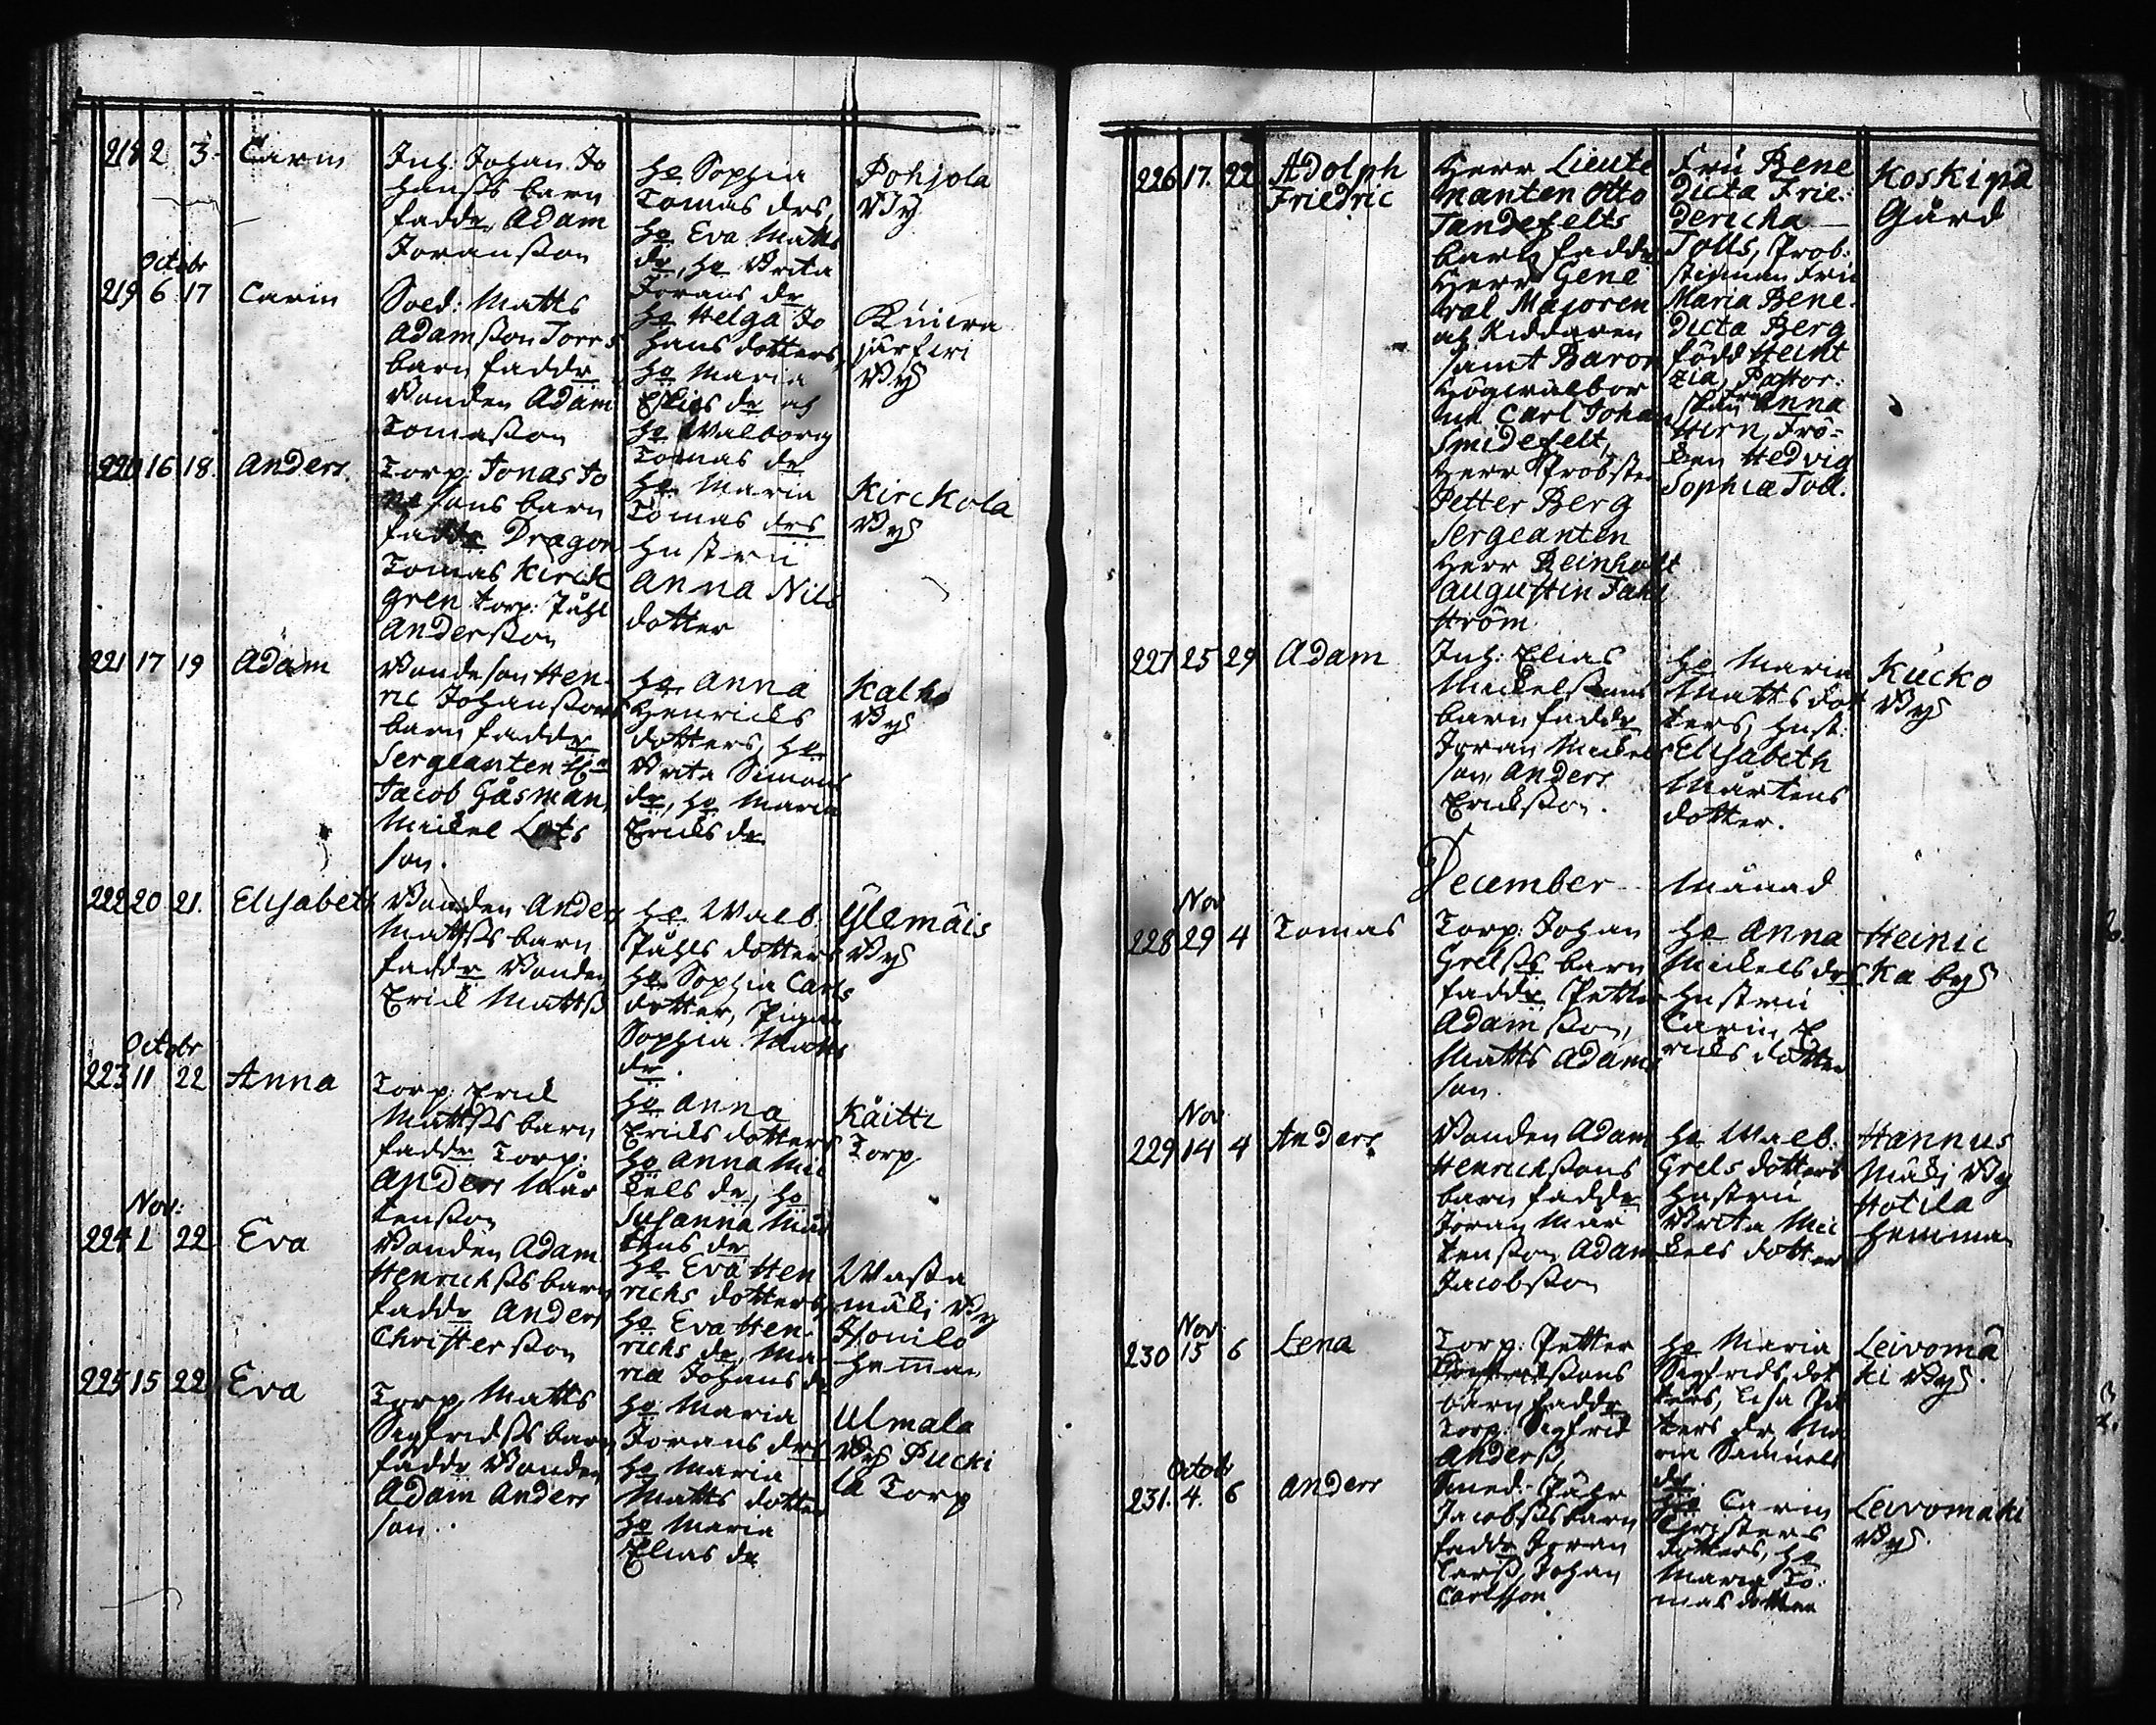 218 2 3 Carin
Inh: Johan Jo
hanss barn
faddr Adam
Joransson
He Sophia
Tomas drs,
Ho Eva Matts
dr, Ho Brita
Jorans dr
Pohjola
By
Octobr
219 6 17 Carin
Sold: Matts
Adamsson Torrs
barn faddr
Bonden Adam
Tomasson
He Helga Jo
hans dotters
Ho Maria
dr och
Ho Walborg
Tomas dr
järfwi
By
220 16 18. Anders
Torp: Jonas Jo
nasons barn
faddr Dragon
Tomas Kirck
gren torp: Påhl
Andersson
He Maria
Tomas drs
Hustru
Anna Nils
dotter
Kirckola
By
221 17 19 Adam
Bondeson Hen
ric Johanssons
barn faddr
Sergeanten Hr
Jacob Gåsman,
Mickel
son.
He Anna
Henricks
dotters, Ho
Brita Simons
dr, Ho Maria
Ericks dr
Kalko
By
222 20 21. Elisabeth
Bonden Anders
Mattss barn
faddr Bonden
Erick Matts
He Walb.
Påhls dotters
Ho Sophia Carls
dotter, Pigan
Sophia Matts
dr.
Ylemäis
By
Octobr
223 11 22 Anna
Torp: Erick
Mattss barn
faddr Torp:
Anders Mår
tensson
He Anna
Ericks dotters
Ho Anna Mic
kels dr, Ho
Susanna Mår
tens dr
Käitti
Torp
Nov:
224 1 22 Eva
Bonden Adam
Henrichss barn
faddr Anders
Christersson
He Eva Hen
richs dotters
Ho Eva Hen
richs dr, Ma
ria Johans dr
Wassa
mäki By
Honilo
Hemman
225 15 22 Eva
Torp Matts
Sigfridss barn
faddr Bonden
Adam Anders
son.
He Maria
Jorans drs
Ho Maria
Matts dotter
Ho Maria
Elias dr
Ulmala
By Pucki
la Torp
226 17. 22 Adolph
Friedric
Herr Lieute
nanten Otto
Tandefelts
barn faddr
Herr Gene
ral Majoren
och Riddaren
samt Baron
Högwälbor
ne Carl Johan
Smidefelt,
Herr Probsten
Petter Berg
Sergeanten
Herr Reinholt
Augustin Fahl
ström
Fru Bene
dicta Frie:
dericha
Tolls, Prob:
stinnan Fru
Maria Bene:
dicta Berg
född Heint
zia, Pastor:
skan Fru Anna
Hirn, Frö=
ken Hedvig
Sophia Toll.
Koskipä
Gård
227 25 29 Adam
Inh: Elias
Mickelssons
barn faddr
Joran Mickels
son, Anders
Ericksson.
He Maria
Matts dot
ters, Hust:
Elisabeth
Mårtens
dotter.
Kucko
By
December Månad
Nov
228 29 4 Tomas
Torp: Johan
Grelss barn
faddr Petter
Adamsson,
Matts Adams
son.
He Anna
Mickels drs
Hustru
Carin E
ricks dotter
Heinic
ka by
Nov
229 14 4 Anders
Bonden Adam
Henrichssons
barn faddr
Joran Mår
tensson Adam
Jacobsson
He Walb:
Grels dotters
Hustru
Brita Mic
kels dotter
Hannus
mäki By
Hotila
Hemman
Nov
230 15 6 Lena
Torp: Petter
barn faddr
Torp: Sigfrid
Anderss,
He Maria
Sigfrids dot
ters, Lisa Pet
ters dr, Ma
ria Samuels
dr
Leivomä
ki By.
Octobr
231. 4. 6 Anders
Smed: Påhr
Jacobss barn
faddr Joran
Larss, Johan
Carlsson
He Carin
Christers
dotters, Ho
Maria To
mas dotter
Leivomäki
By.